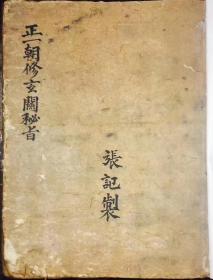 正一朝修玄關秘旨
張記製